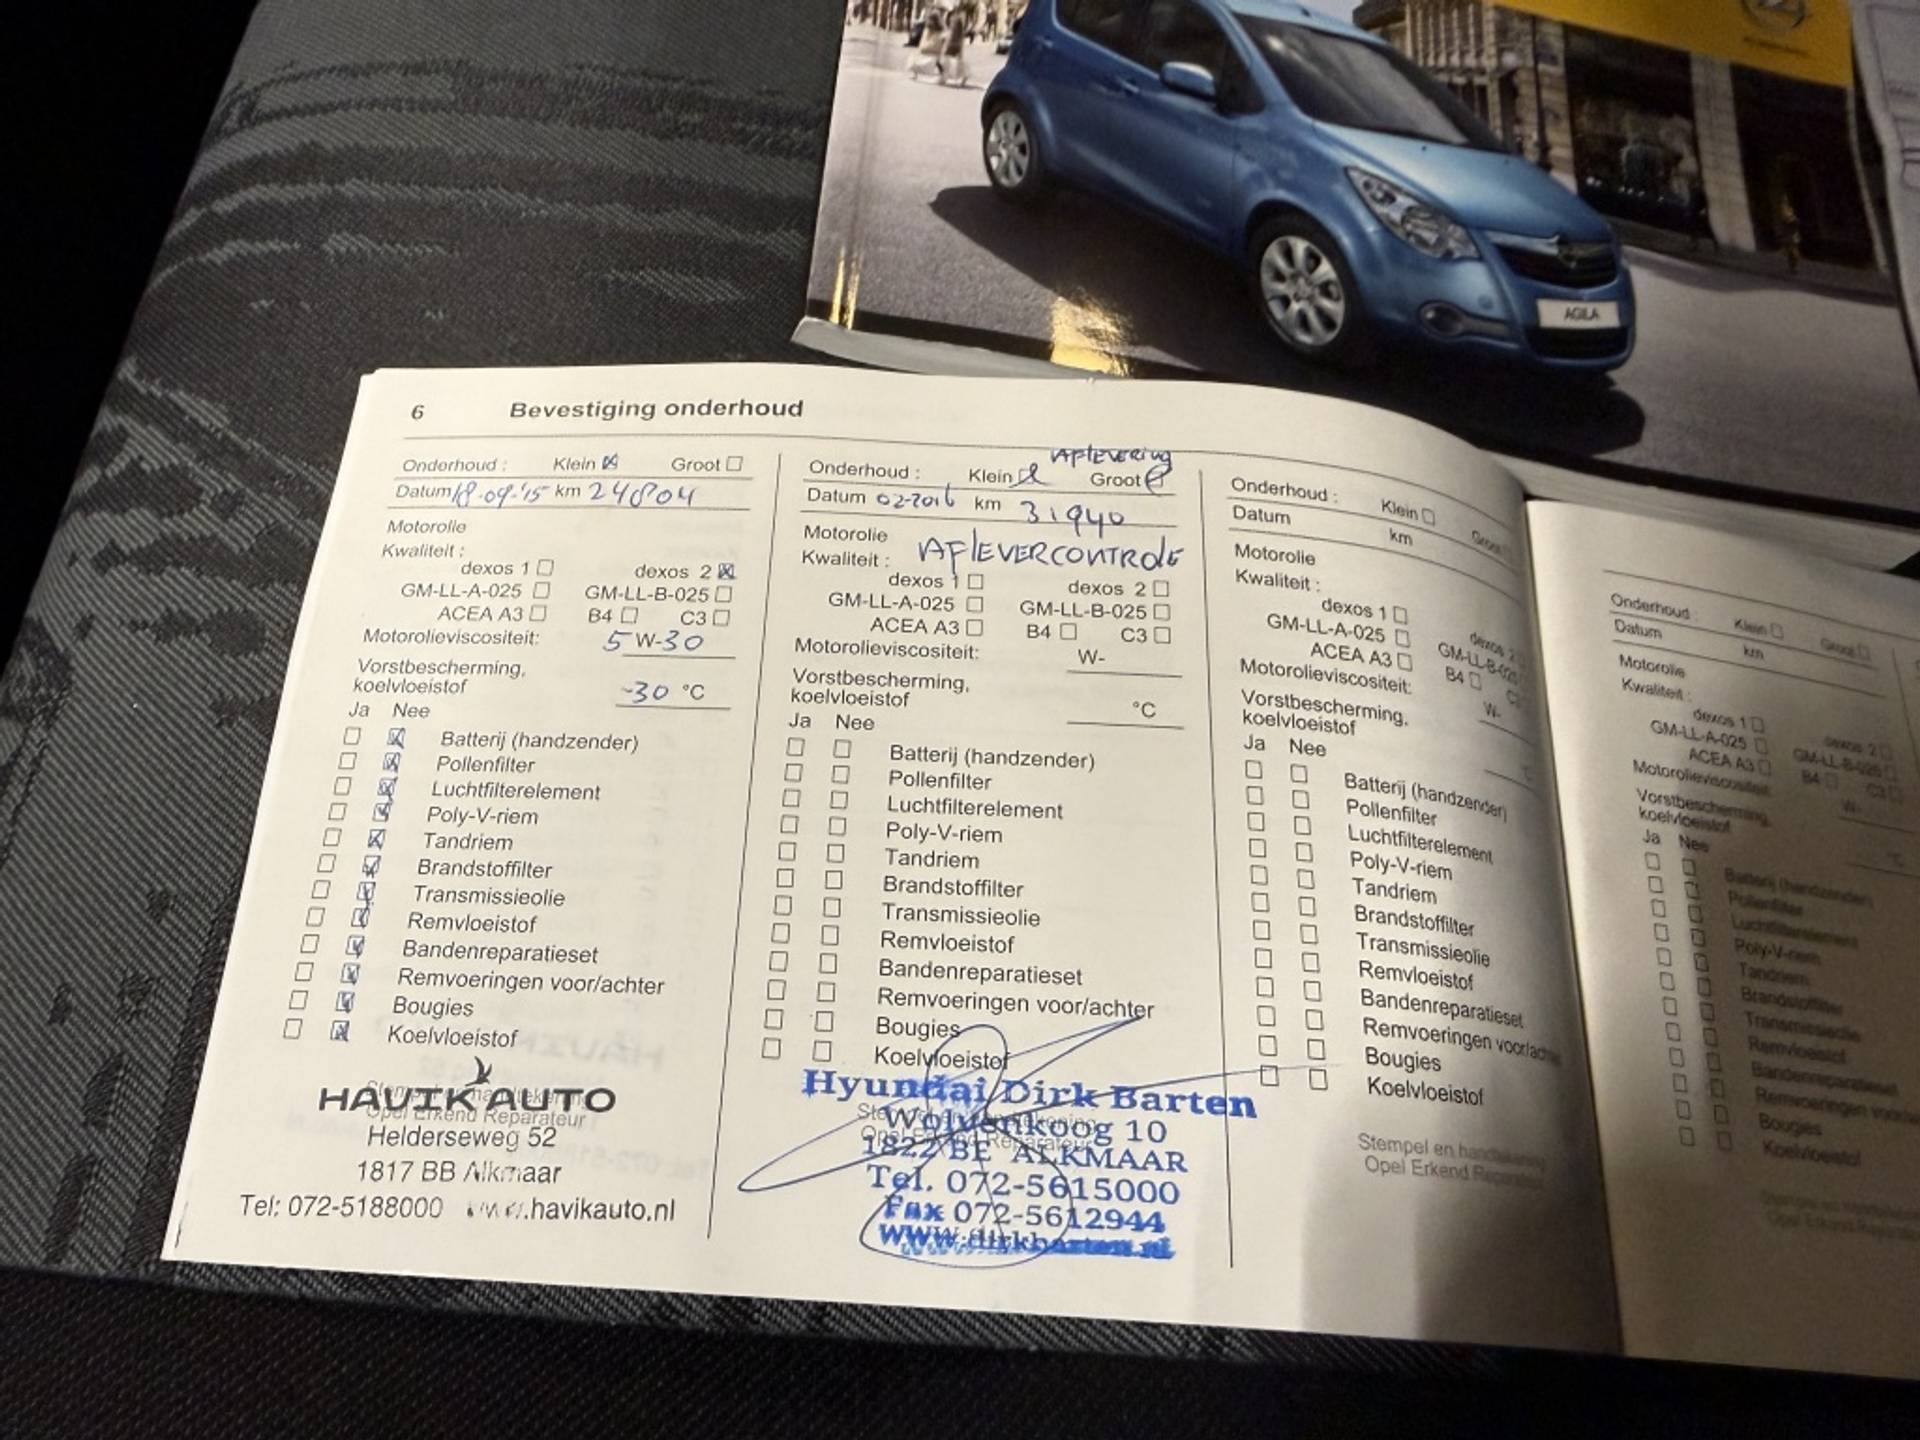 AGILA
6 Bevestiging onderhoud
Onderhoud : Klein ☒ Groot ☐
Datum 18-09-'15 km 24804
Motorolie
Kwaliteit :
dexos 1 ☐ dexos 2 ☒
GM-LL-A-025 ☐ GM-LL-B-025 ☐
ACEA A3 ☐ B4 ☐ C3 ☐
Motorolieviscositeit: 5 W-30
Vorstbescherming,
koelvloeistof -30 °C
Ja Nee
☐ ☒ Batterij (handzender)
☐ ☒ Pollenfilter
☐ ☒ Luchtfilterelement
☐ ☒ Poly-V-riem
☐ ☒ Tandriem
☐ ☒ Brandstoffilter
☐ ☒ Transmissieolie
☐ ☒ Remvloeistof
☐ ☒ Bandenreparatieset
☐ ☒ Remvoeringen voor/achter
☐ ☒ Bougies
☐ ☒ Koelvloeistof
HAVIK AUTO
Opel Erkend Reparateur
Helderseweg 52
1817 BB Alkmaar
Tel: 072-5188000 www.havikauto.nl
Aflevering
Onderhoud : Klein Groot
Datum 02-2016 km 31940
Motorolie
Kwaliteit : AFLEVERCONTROLE
dexos 1 ☐ dexos 2 ☐
GM-LL-A-025 ☐ GM-LL-B-025 ☐
ACEA A3 ☐ B4 ☐ C3 ☐
Motorolieviscositeit: W-
Vorstbescherming,
koelvloeistof °C
Ja Nee
☐ ☐ Batterij (handzender)
☐ ☐ Pollenfilter
☐ ☐ Luchtfilterelement
☐ ☐ Poly-V-riem
☐ ☐ Tandriem
☐ ☐ Brandstoffilter
☐ ☐ Transmissieolie
☐ ☐ Remvloeistof
☐ ☐ Bandenreparatieset
☐ ☐ Remvoeringen voor/achter
☐ ☐ Bougies
☐ ☐ Koelvloeistof
Hyundai Dirk Barten
Stempel en handtekening
Wolvenkoog 10
Opel Erkend Reparateur
1822 BE ALKMAAR
Tel. 072-5615000
Fax 072-5612944
www.dirkbarten.nl
Onderhoud : Klein ☐ Groot ☐
Datum km
Motorolie
Kwaliteit :
dexos 1 ☐ dexos 2
GM-LL-A-025 ☐ GM-LL-B-025
ACEA A3 ☐ B4 ☐
Motorolieviscositeit: W-
Vorstbescherming,
koelvloeistof
Ja Nee
☐ ☐ Batterij (handzender)
☐ ☐ Pollenfilter
☐ ☐ Luchtfilterelement
☐ ☐ Poly-V-riem
☐ ☐ Tandriem
☐ ☐ Brandstoffilter
☐ ☐ Transmissieolie
☐ ☐ Remvloeistof
☐ ☐ Bandenreparatieset
☐ ☐ Remvoeringen voor/achter
☐ ☐ Bougies
☐ ☐ Koelvloeistof
Stempel en handtekening
Opel Erkend Reparateur
Onderhoud : Klein ☐ Groot ☐
Datum km
Motorolie
Kwaliteit :
dexos 1 ☐ dexos 2 ☐
GM-LL-A-025 ☐ GM-LL-B-025 ☐
ACEA A3 ☐ B4 ☐ C3 ☐
Motorolieviscositeit: W-
Vorstbescherming,
koelvloeistof °C
Ja Nee
☐ ☐ Batterij (handzender)
☐ ☐ Pollenfilter
☐ ☐ Luchtfilterelement
☐ ☐ Poly-V-riem
☐ ☐ Tandriem
☐ ☐ Brandstoffilter
☐ ☐ Transmissieolie
☐ ☐ Remvloeistof
☐ ☐ Bandenreparatieset
☐ ☐ Remvoeringen
☐ ☐ Bougies
☐ ☐ Koelvloeistof
Opel Erkend